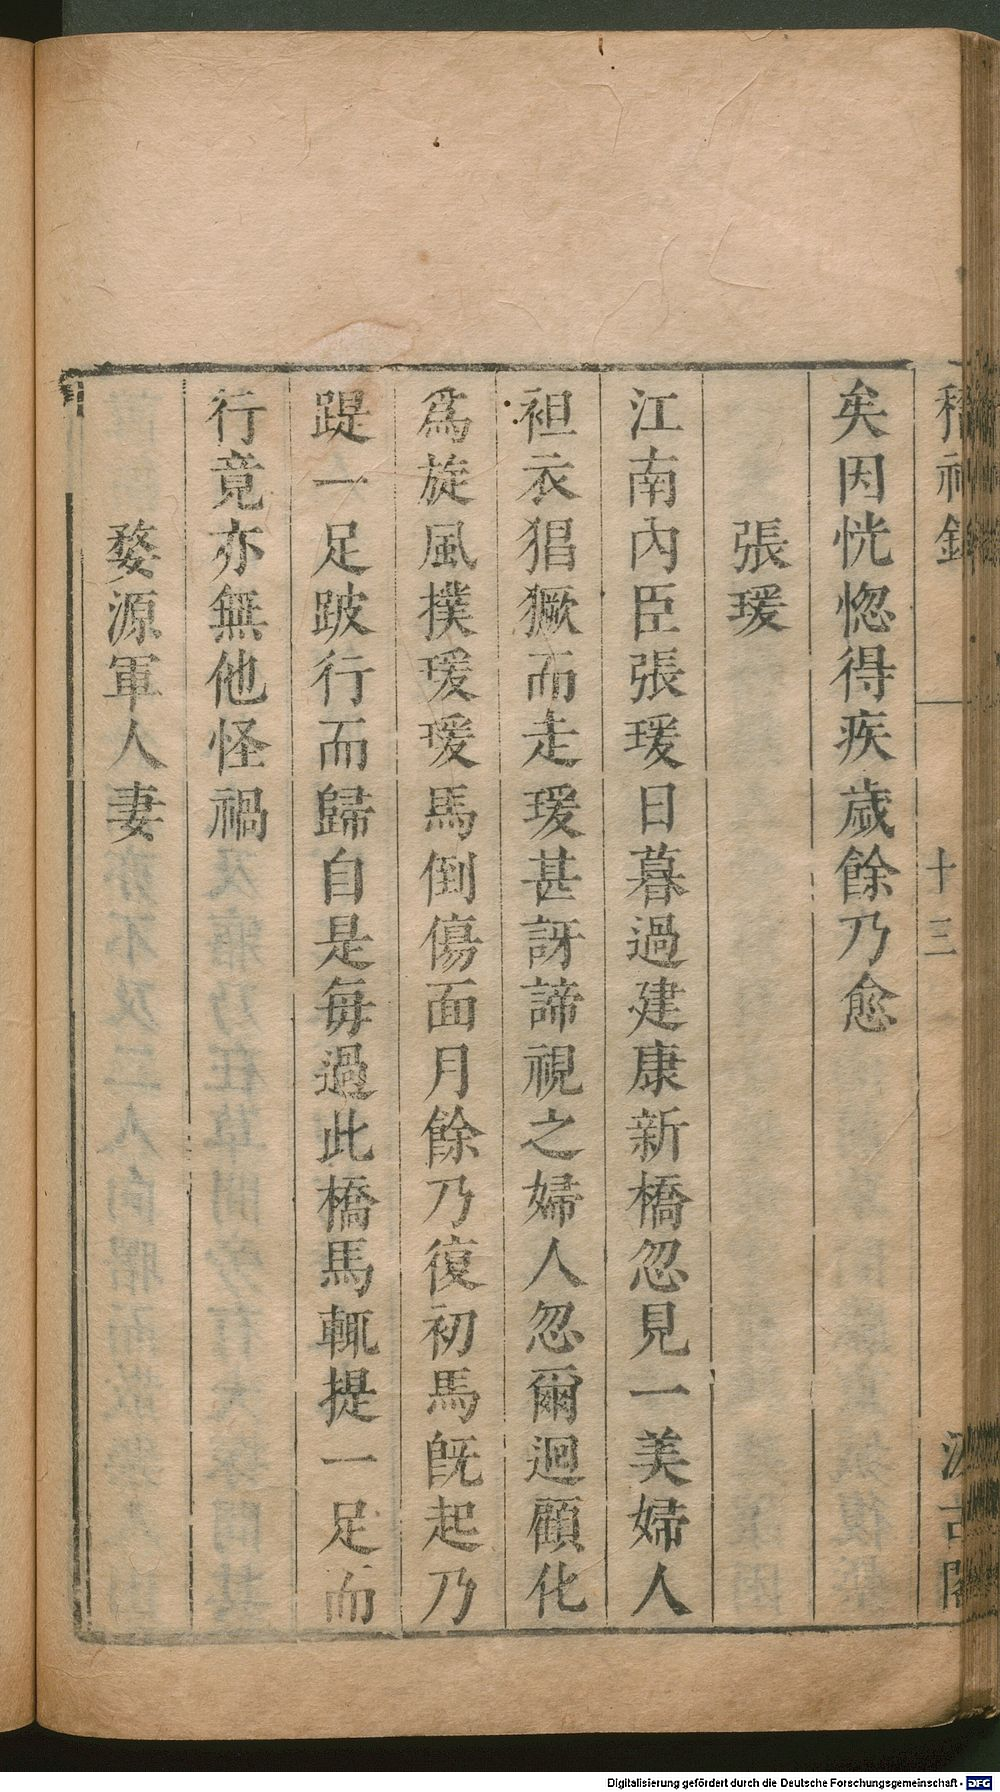 稽神錄
十三
汲古閣
矣因恍惚得疾歲餘乃愈
張瑗
江南內臣張瑗日暮過建康新橋忽見一美婦人
袒衣猖獗而走瑗甚訝諦視之婦人忽爾迴顧化
爲旋風撲瑗瑗馬倒傷面月餘乃復初馬旣起乃
踶一足跛行而歸自是每過此橋馬輒提一足而
行竟亦無他怪禍
婺源軍人妻
Digitalisierung gefördert durch die Deutsche Forschungsgemeinschaft - DFG